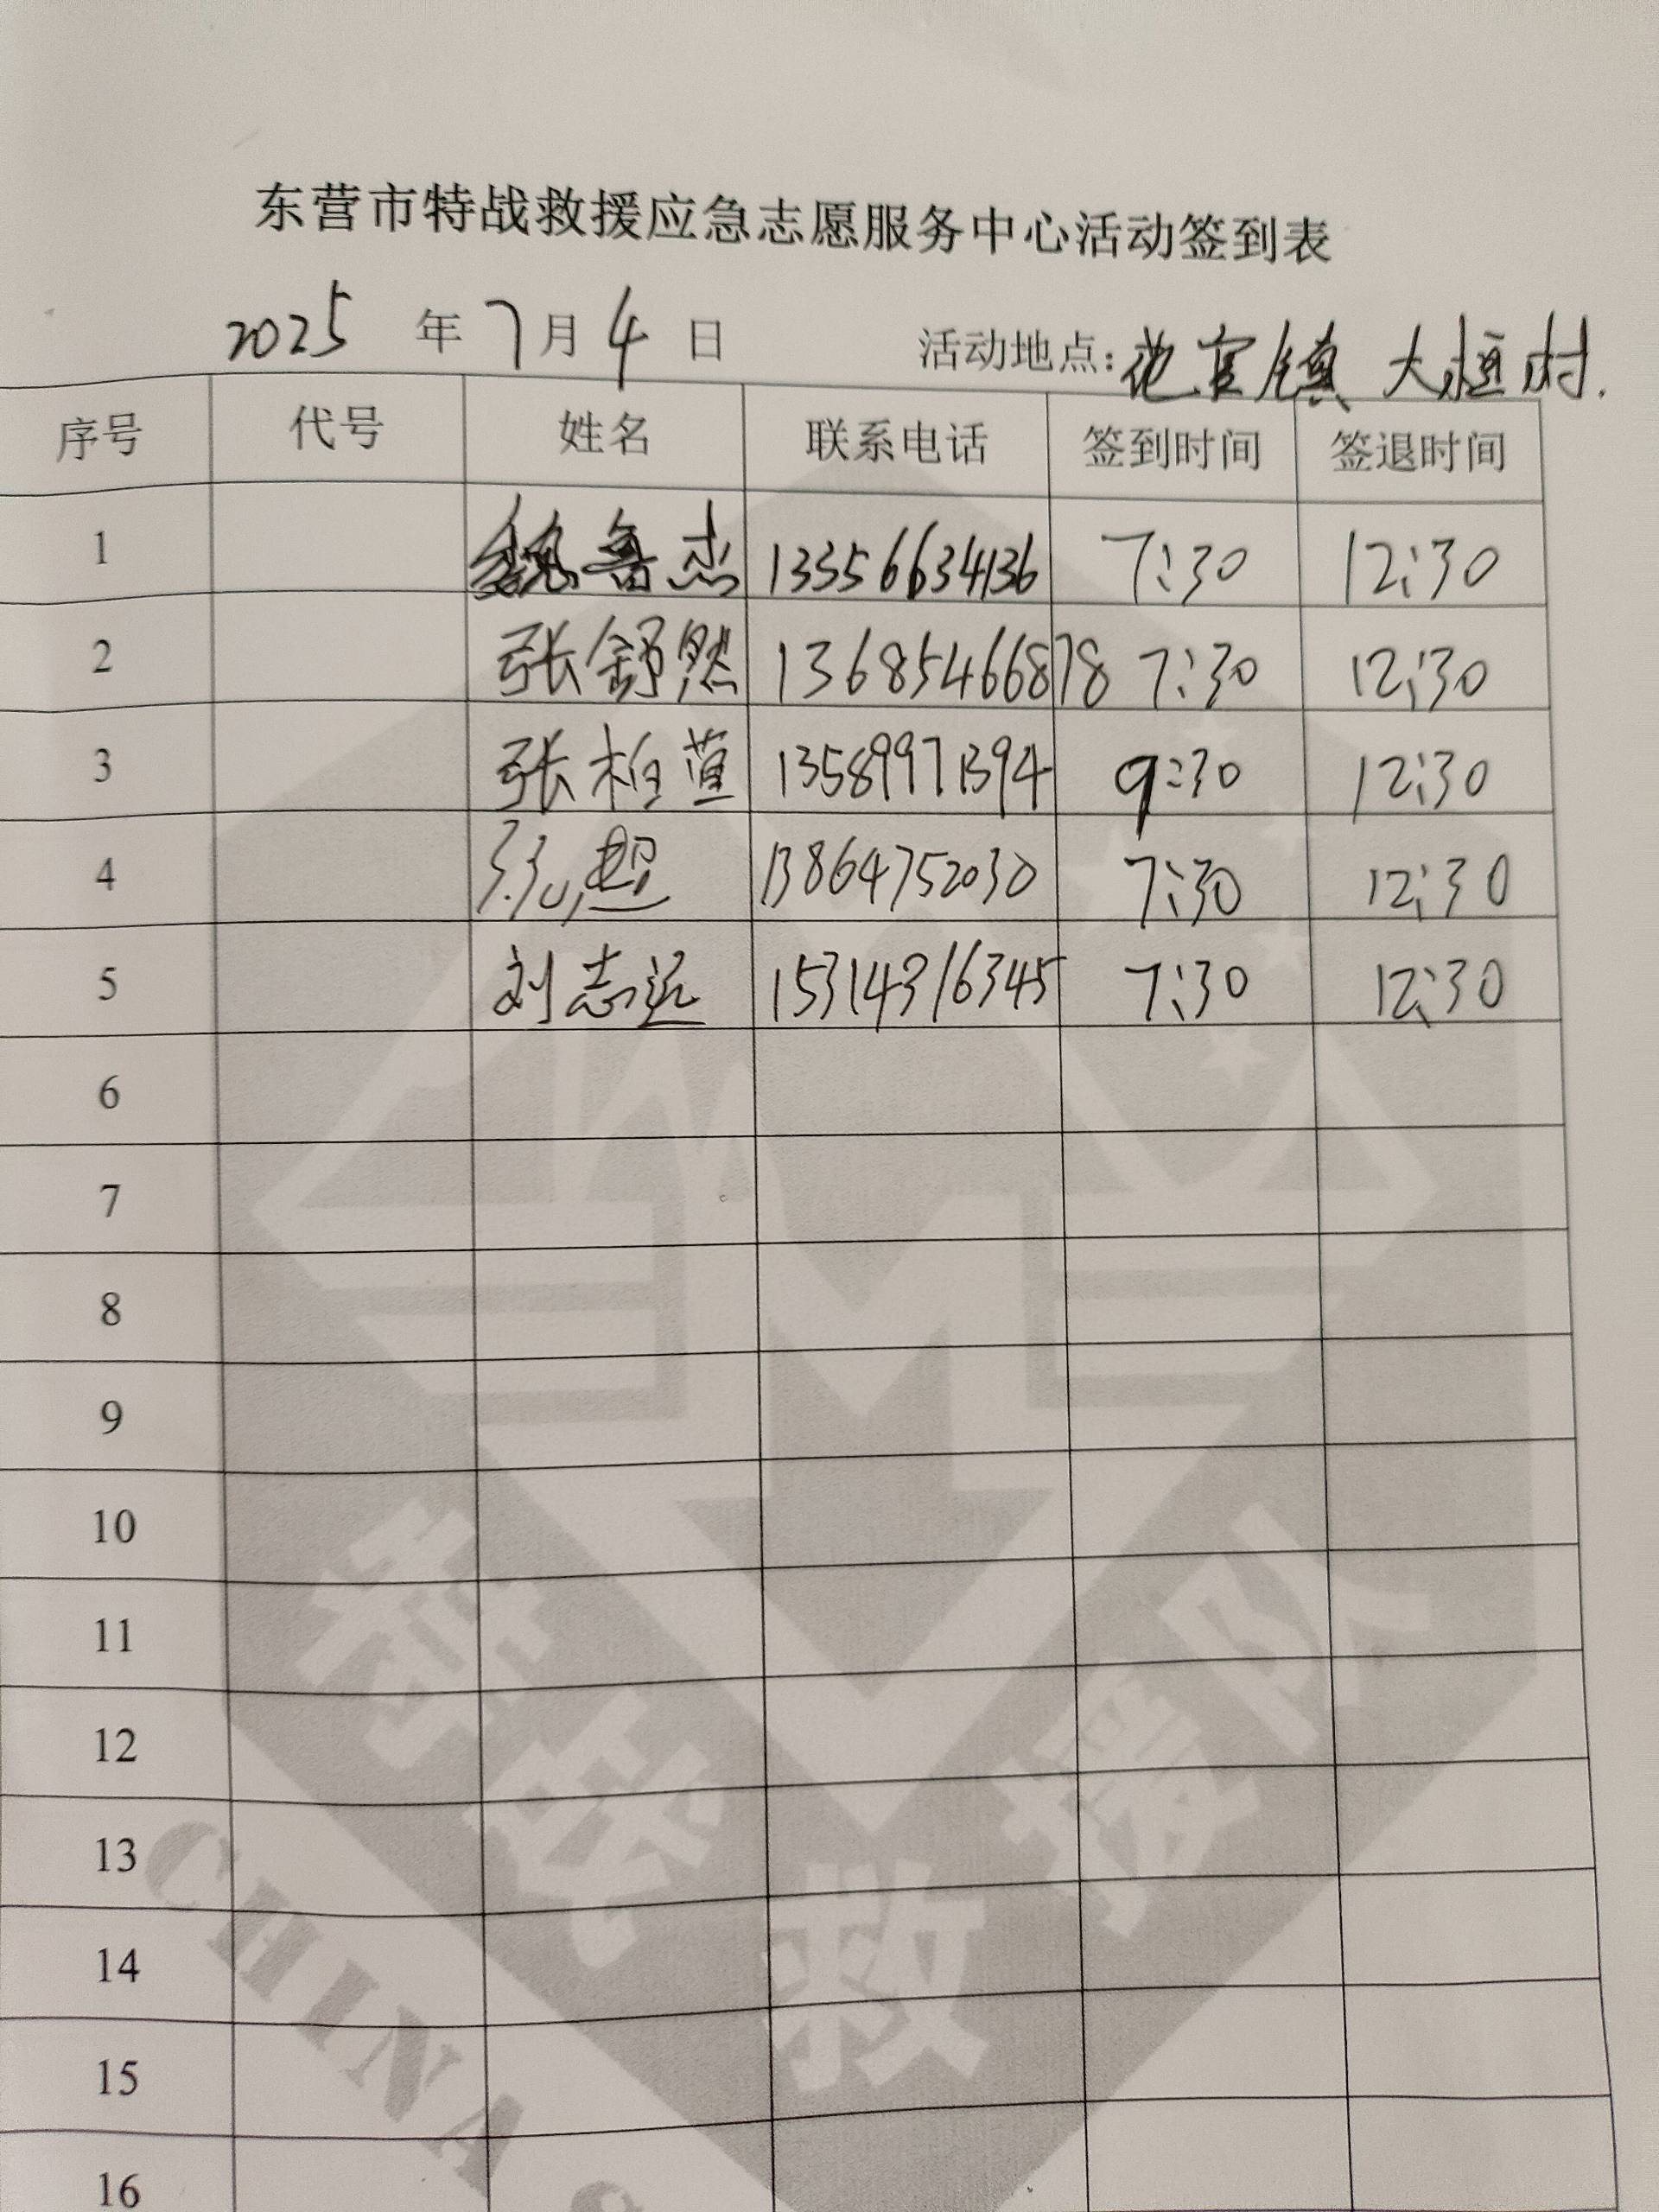 东营市特战救援应急志愿服务中心活动签到表
2025 年 7 月 4 日 活动地点: 花官镇 大桓村.
序号 代号 姓名 联系电话 签到时间 签退时间
1 魏鲁杰 13356634136 7:30 12:30
2 张舒然 13685466878 7:30 12:30
3 张柏萱 13589971394 9:30 12:30
4 13864752030 7:30 12:30
5 刘志远 15314316345 7:30 12:30
6
7
8
9
10
11
12
13
14
15
16
特战救援队
CHINA S